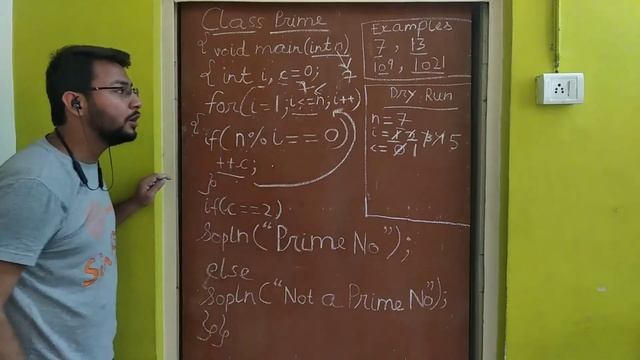 Class Prime
{ void main(int n)
7
{ int i, c=0;
7
for(i=1; i<=n; i++)
{
if(n%i==0)
++c;
}
if(c==2)
Sopln("Prime No");
else
Sopln("Not a Prime No");
}}
Examples
7, 13
109, 1021
Dry Run
n=7
i=1 2 3 4 5
c=0 1